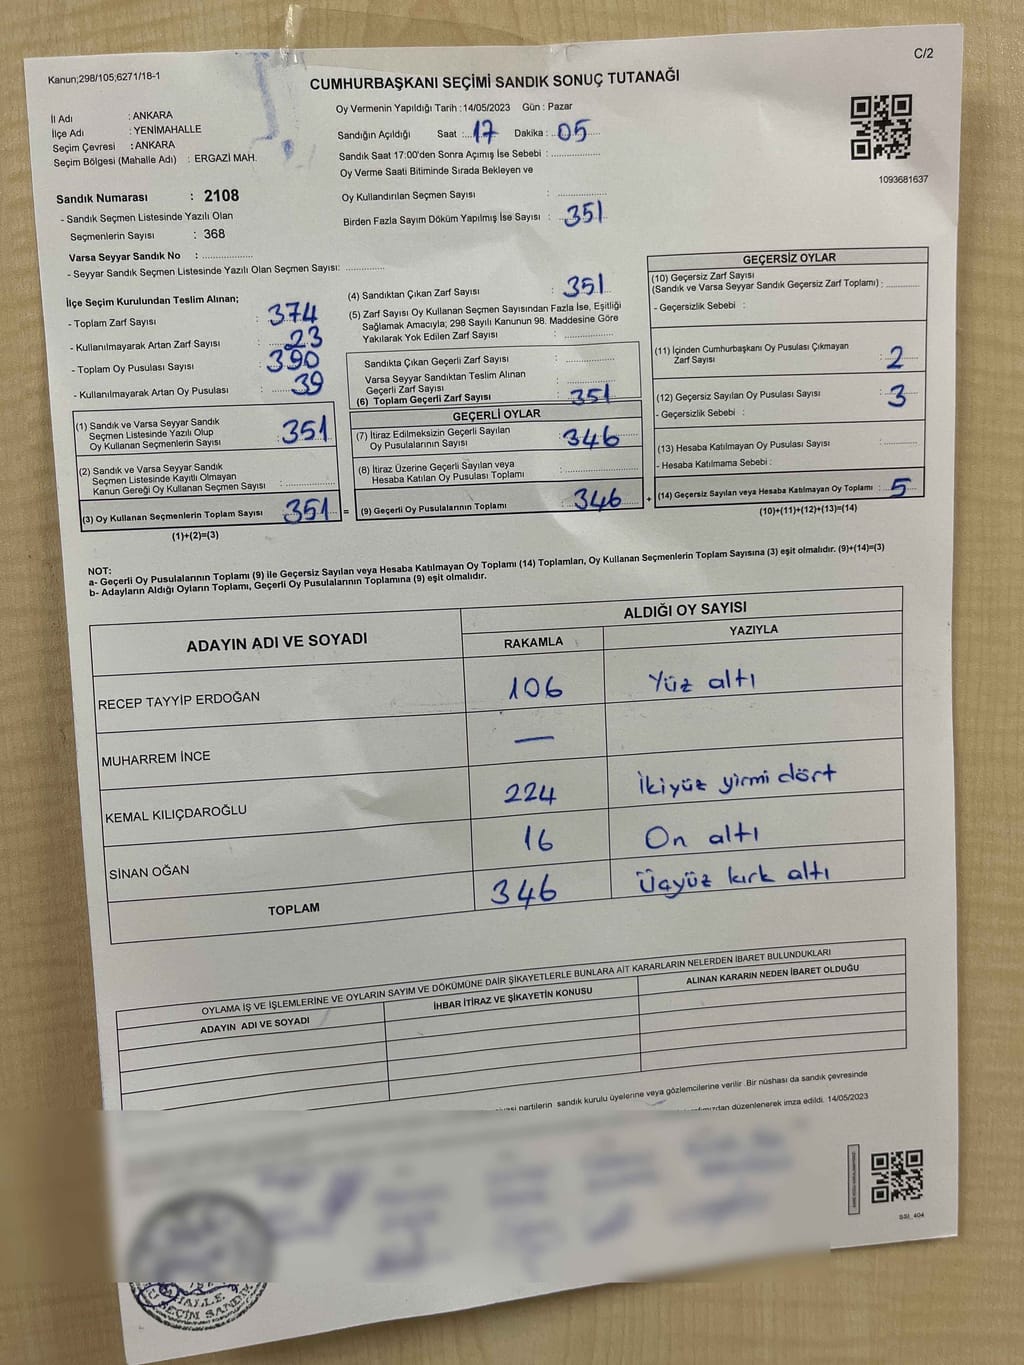 Kanun;298/105;6271/18-1
C/2
CUMHURBAŞKANI SEÇİMİ SANDIK SONUÇ TUTANAĞI
İl Adı : ANKARA
İlçe Adı : YENİMAHALLE
Seçim Çevresi : ANKARA
Seçim Bölgesi (Mahalle Adı) : ERGAZİ MAH.
Oy Vermenin Yapıldığı Tarih : 14/05/2023 Gün : Pazar
Sandığın Açıldığı Saat :... 17 Dakika :.. 05
Sandık Saat 17:00'den Sonra Açımış İse Sebebi :
Oy Verme Saati Bitiminde Sırada Bekleyen ve
Oy Kullandırılan Seçmen Sayısı :
Birden Fazla Sayım Döküm Yapılmış İse Sayısı : 351
1093681637
Sandık Numarası : 2108
- Sandık Seçmen Listesinde Yazılı Olan
Seçmenlerin Sayısı : 368
Varsa Seyyar Sandık No :
- Seyyar Sandık Seçmen Listesinde Yazılı Olan Seçmen Sayısı:
İlçe Seçim Kurulundan Teslim Alınan;
- Toplam Zarf Sayısı : 374
- Kullanılmayarak Artan Zarf Sayısı : 23
- Toplam Oy Pusulası Sayısı : 390
- Kullanılmayarak Artan Oy Pusulası : 39
(1) Sandık ve Varsa Seyyar Sandık
Seçmen Listesinde Yazılı Olup
Oy Kullanan Seçmenlerin Sayısı : 351
(2) Sandık ve Varsa Seyyar Sandık
Seçmen Listesinde Kayıtlı Olmayan
Kanun Gereği Oy Kullanan Seçmen Sayısı :
(3) Oy Kullanan Seçmenlerin Toplam Sayısı : 351 =
(1)+(2)=(3)
(4) Sandıktan Çıkan Zarf Sayısı : 351
(5) Zarf Sayısı Oy Kullanan Seçmen Sayısından Fazla İse, Eşitliği
Sağlamak Amacıyla; 298 Sayılı Kanunun 98. Maddesine Göre
Yakılarak Yok Edilen Zarf Sayısı :
Sandıkta Çıkan Geçerli Zarf Sayısı :
Varsa Seyyar Sandıktan Teslim Alınan
Geçerli Zarf Sayısı :
(6) Toplam Geçerli Zarf Sayısı : 351
GEÇERLİ OYLAR
(7) İtiraz Edilmeksizin Geçerli Sayılan
Oy Pusulalarının Sayısı : 346
(8) İtiraz Üzerine Geçerli Sayılan veya
Hesaba Katılan Oy Pusulası Toplamı :
(9) Geçerli Oy Pusulalarının Toplamı : 346 +
GEÇERSİZ OYLAR
(10) Geçersiz Zarf Sayısı
(Sandık ve Varsa Seyyar Sandık Geçersiz Zarf Toplamı) :
- Geçersizlik Sebebi :
(11) İçinden Cumhurbaşkanı Oy Pusulası Çıkmayan
Zarf Sayısı : 2
(12) Geçersiz Sayılan Oy Pusulası Sayısı : 3
- Geçersizlik Sebebi :
(13) Hesaba Katılmayan Oy Pusulası Sayısı :
- Hesaba Katılmama Sebebi :
(14) Geçersiz Sayılan veya Hesaba Katılmayan Oy Toplamı : 5
(10)+(11)+(12)+(13)=(14)
NOT:
a- Geçerli Oy Pusulalarının Toplamı (9) ile Geçersiz Sayılan veya Hesaba Katılmayan Oy Toplamı (14) Toplamları, Oy Kullanan Seçmenlerin Toplam Sayısına (3) eşit olmalıdır. (9)+(14)=(3)
b- Adayların Aldığı Oyların Toplamı, Geçerli Oy Pusulalarının Toplamına (9) eşit olmalıdır.
ADAYIN ADI VE SOYADI
ALDIĞI OY SAYISI
RAKAMLA YAZIYLA
RECEP TAYYİP ERDOĞAN 106 Yüz altı
MUHARREM İNCE —
KEMAL KILIÇDAROĞLU 224 İkiyüz yirmi dört
SİNAN OĞAN 16 On altı
TOPLAM 346 Üçyüz kırk altı
OYLAMA İŞ VE İŞLEMLERİNE VE OYLARIN SAYIM VE DÖKÜMÜNE DAİR ŞİKAYETLERLE BUNLARA AİT KARARLARIN NELERDEN İBARET BULUNDUKLARI
ADAYIN ADI VE SOYADI İHBAR İTİRAZ VE ŞİKAYETİN KONUSU ALINAN KARARIN NEDEN İBARET OLDUĞU
partilerin sandık kurulu üyelerine veya gözlemcilerine verilir. Bir nüshası da sandık çevresinde
düzenlenerek imza edildi. 14/05/2023
SSI_404
HALLE
SEÇİM SANDIK